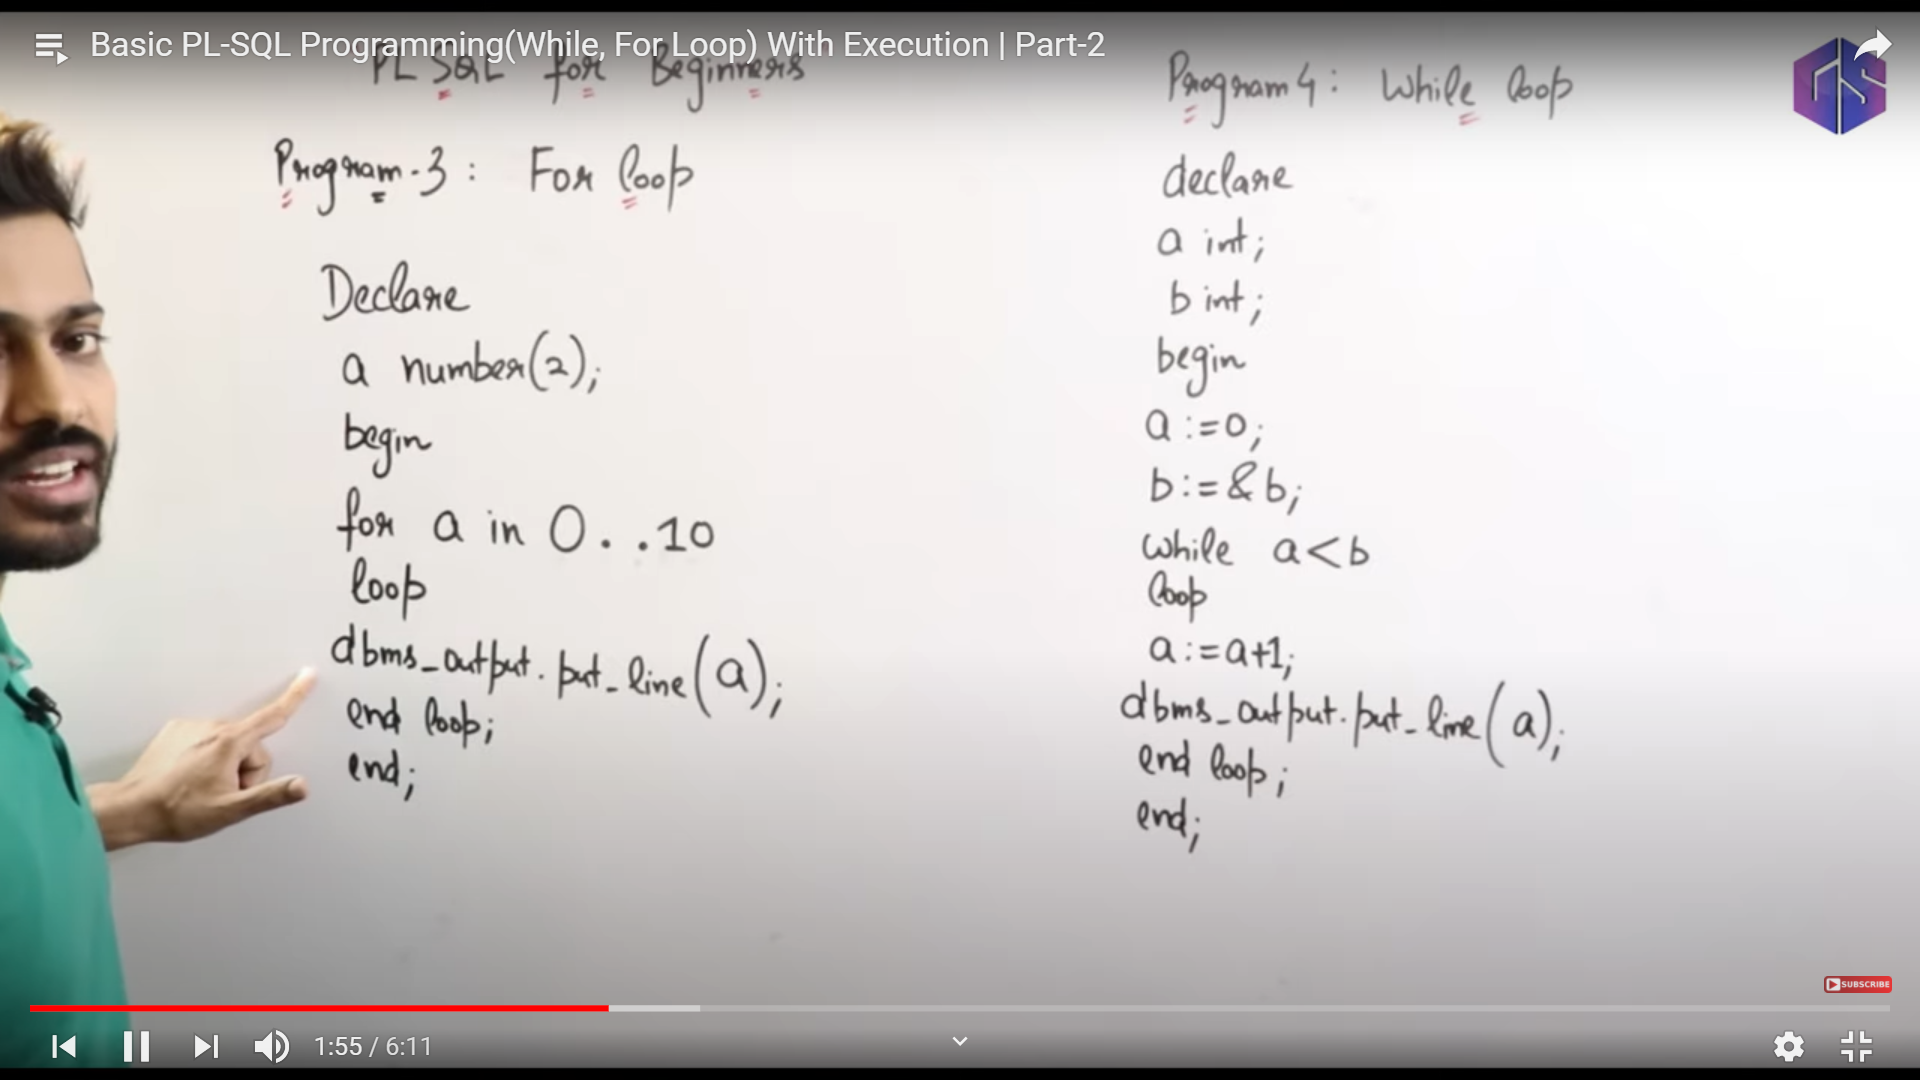 Basic PL-SQL Programming(While, For Loop) With Execution | Part-2
PL SQL for Beginners
Program-3: For loop
Declare
a number(2);
begin
for a in 0..10
loop
dbms_output.put_line(a);
end loop;
end;
Program 4: While loop
declare
a int;
b int;
begin
a:=0;
b:=&b;
while a<b
loop
a:=a+1;
dbms_output.put_line(a);
end loop;
end;
SUBSCRIBE
1:55 / 6:11